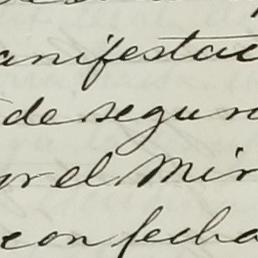 anifestac
de segur
or el Min
con fecha